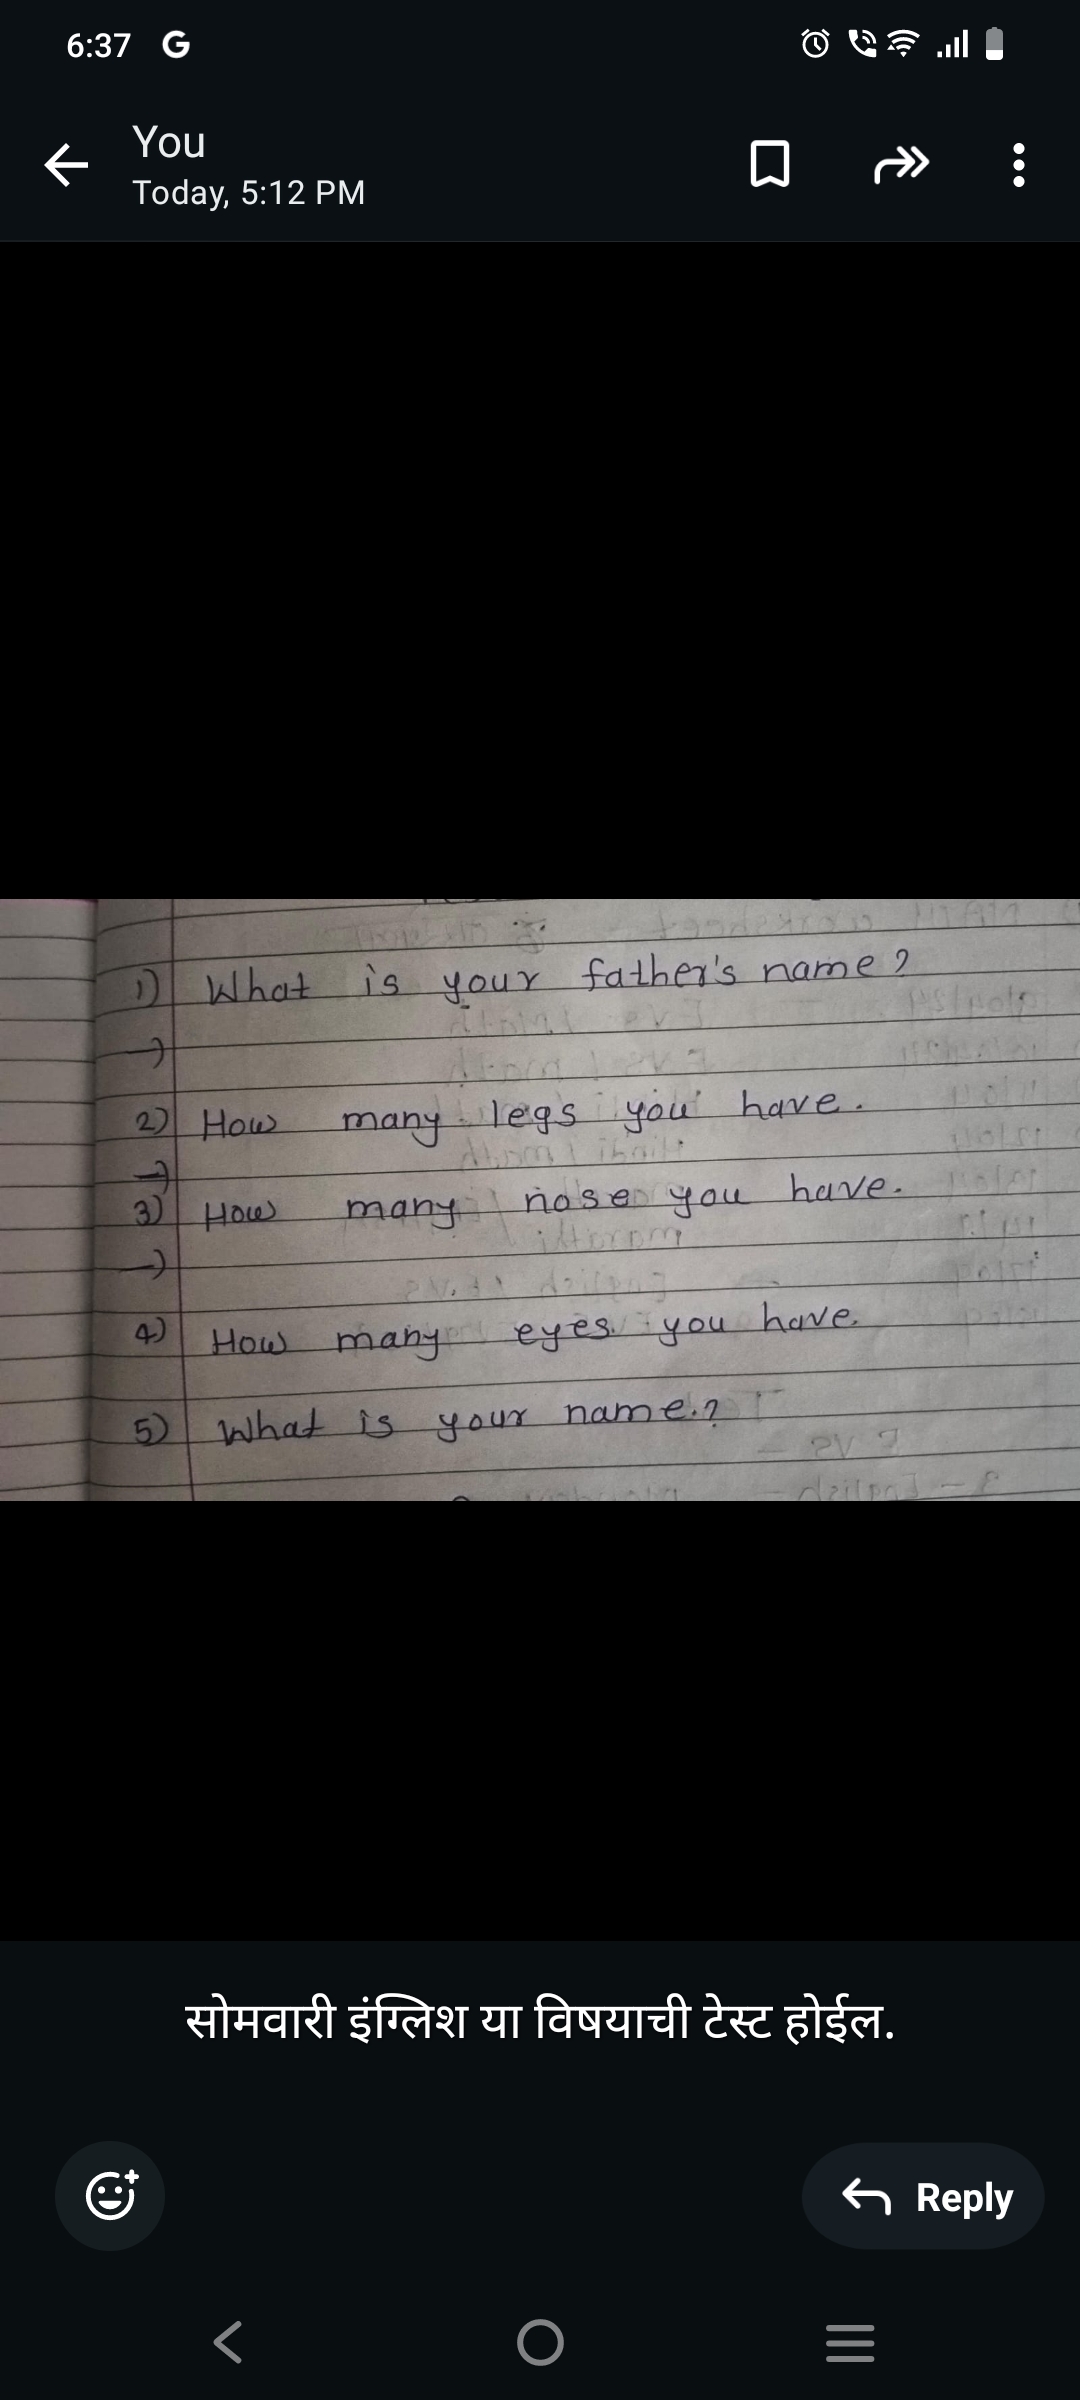 6:37 G
You
Today, 5:12 PM
1) What is your father's name?
→
2) How many legs you have.
→
3) How many nose you have.
→
4) How many eyes. you have.
5) What is your name.?
सोमवारी इंग्लिश या विषयाची टेस्ट होईल.
Reply